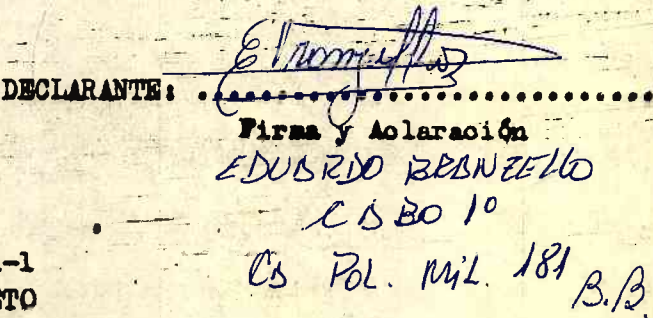 DECLARANTE: ........................................
Firma y Aclaración
EDUARDO
CABO 1º
Cia POL. MIL. 181 B.B.
-1
STO